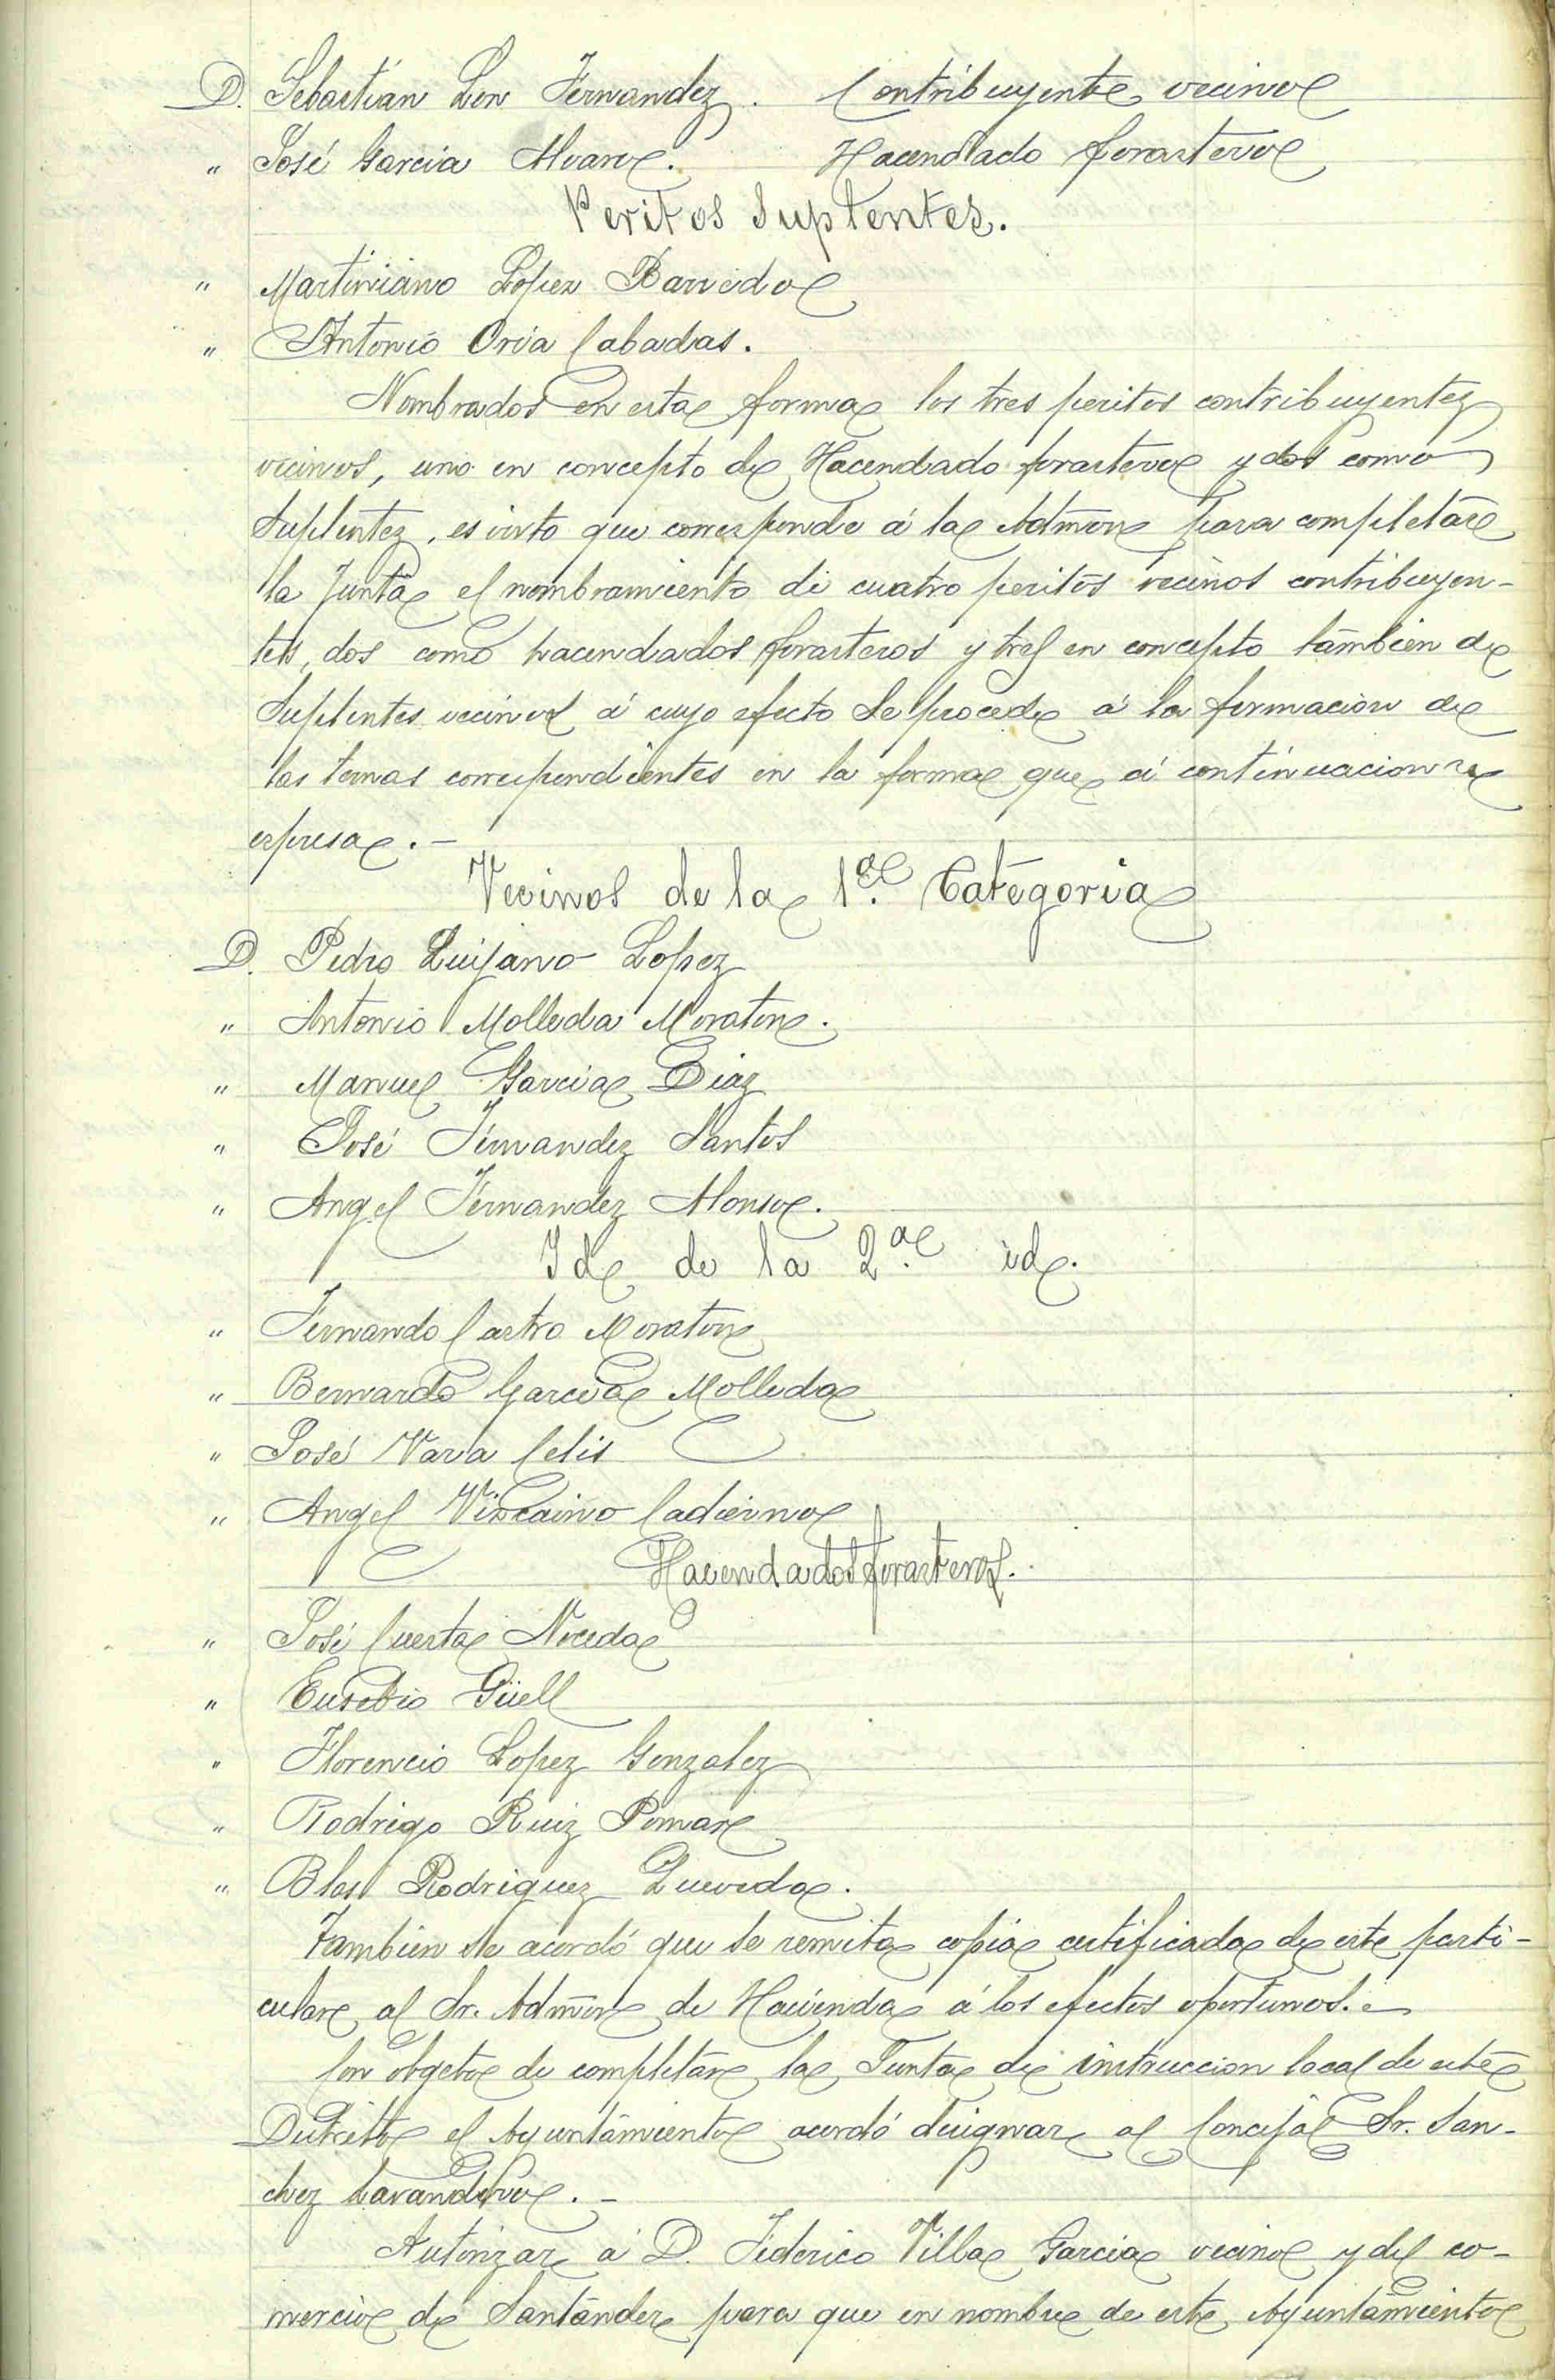 D. Sebastián Len Fernandez. Contribuyente vecino
" José Garcia Alvaro. Hacendado forastero
Peritos Suplentes.
" Martiniano Lopez Barredo
" Antonio Oria Cabadas.
Nombrados en esta forma los tres peritos contribuyentes
vecinos, uno en concepto de Hacendado forastero y dos como
Suplentes, es visto que corresponde á la Admón para completar
la Junta el nombramiento de cuatro peritos vecinos contribuyen-
tes, dos como hacendados forasteros y tres en concepto tambien de
Suplentes vecinos á cuyo efecto se procede á la formacion de
las ternas correspondientes en la forma que á continuacion se
espresa.-
Vecinos de la 1.ª Categoria
D. Pedro Quijano Lopez
" Antonio Molleda Moraton.
" Manuel Garcia Diaz
" José Fernandez Santos
" Angel Fernandez Alonso.
Id de la 2.ª id.
" Fernando Castro Moraton
" Bernardo Garcia Molleda
" José Vara Celis
" Angel Vizcaino Cadierno
Hacendados forasteros.
" José Cuesta Noceda
" Eusebio Güell
" Florencio Lopez Gonzalez
" Rodrigo Ruiz Pomar
" Blas Rodriguez Quevedo.
Tambien se acordó que se remita copia certificada de este parti-
cular al Sr. Admor de Hacienda á los efectos oportunos.-
Con obgeto de completar la Junta de instruccion local de este
Distrito el Ayuntamiento acordó designar al Concejal Sr. San-
chez Lavandero.-
Autorizar á D. Federico Villa Garcia vecino y del co-
mercio de Santander para que en nombre de este Ayuntamiento